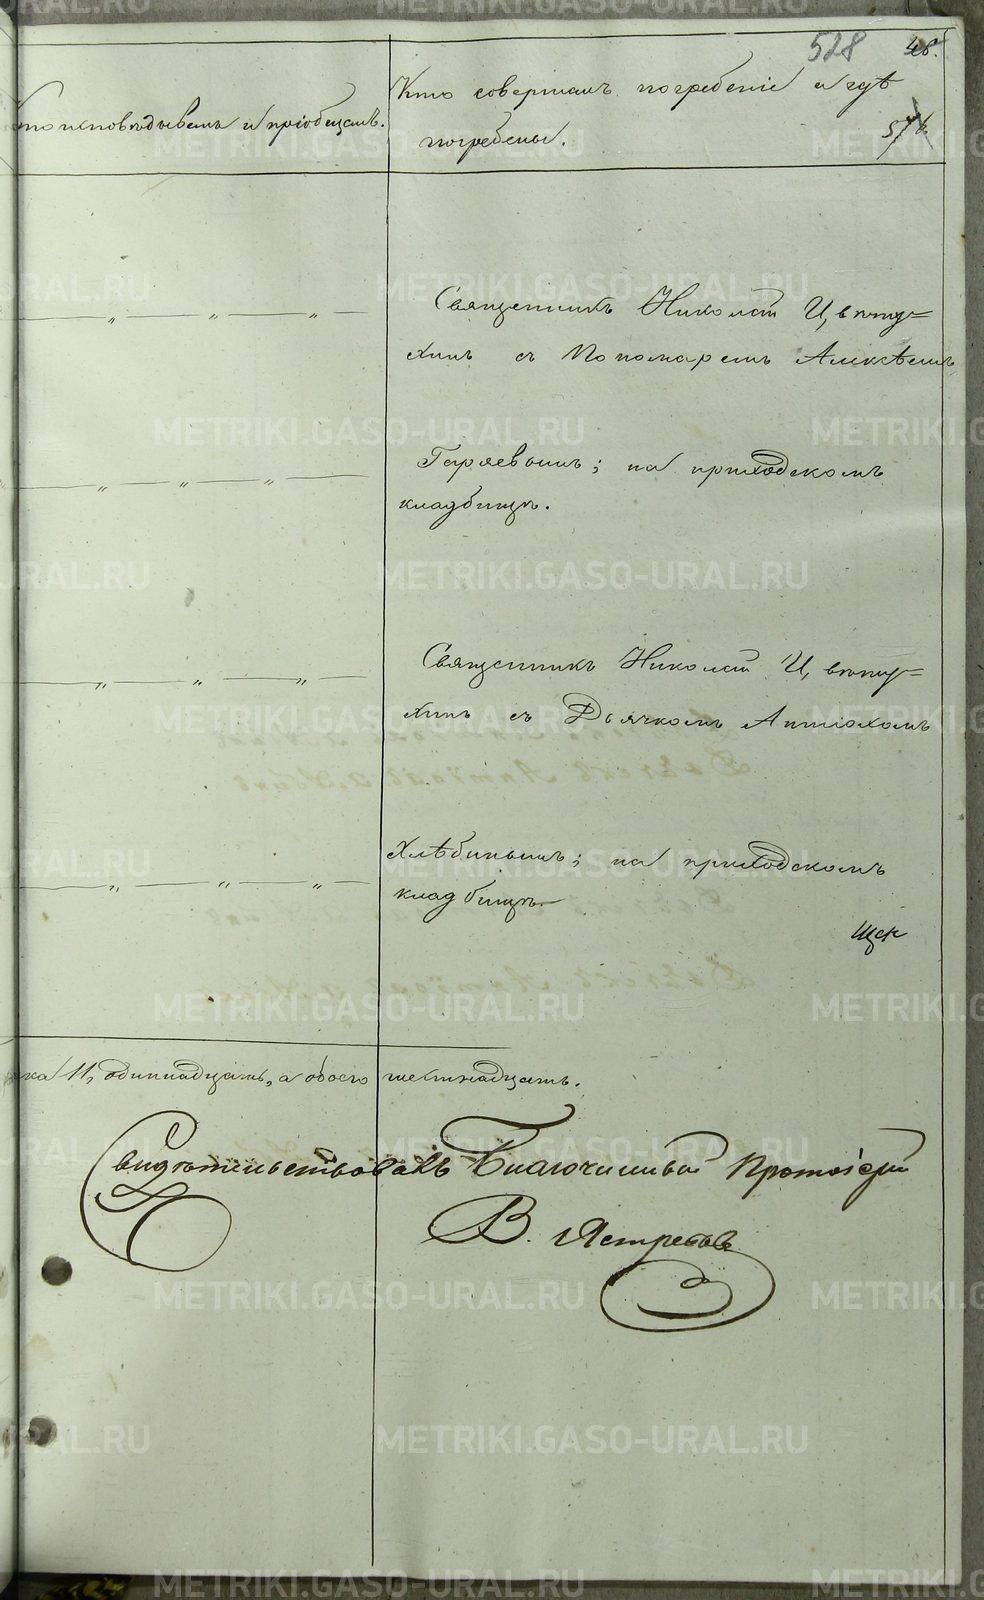 528 48.
Кто совершалъ погребеніе и гдѣ
Кто исповѣдывалъ и пріобщалъ.
погребены.
Священникъ Николай Цвѣту=
хинъ съ Пономаремъ Алексѣемъ
Гаряевымъ; на приходскомъ
кладбищѣ.
Священникъ Николай Цвѣту=
хинъ съ Дьячкомъ Антіохомъ
Хлѣбинымъ; на приходскомъ
кладбищѣ.
11, одиннадцать, а обоего шестнадцать.
Свидѣтельствовалъ Благочинный Протоіерей
В. Ястребовъ
METRIKI.GASO-URAL.RU